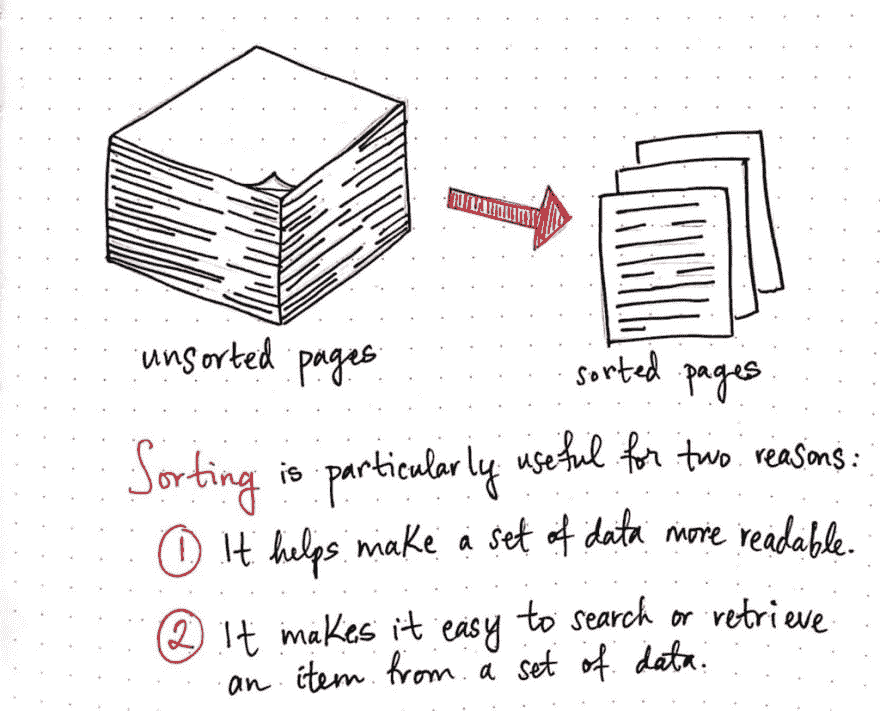 unsorted pages
sorted pages
Sorting is particularly useful for two reasons:
1 It helps make a set of data more readable.
2 It makes it easy to search or retrieve
an item from a set of data.